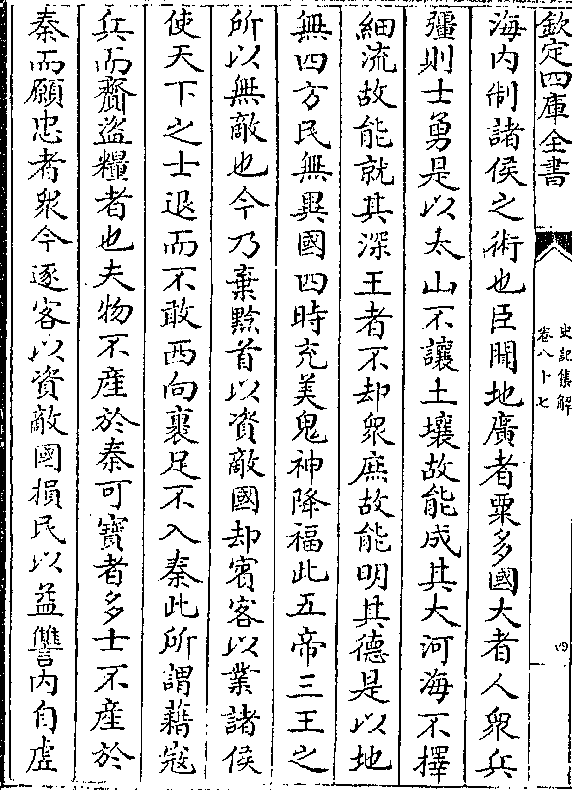 欽定四庫全書
史記集解
卷八十七
四
海内制諸侯之術也臣聞地廣者粟多國大者人衆兵
彊則士勇是以太山不讓土壤故能成其大河海不擇
細流故能就其深王者不却衆庶故能明其德是以地
無四方民無異國四時充美鬼神降福此五帝三王之
所以無敵也今乃棄黔首以資敵國却賓客以業諸侯
使天下之士退而不敢西向裹足不入秦此所謂藉寇
兵而齎盜糧者也夫物不產於秦可寶者多士不產於
秦而願忠者衆今逐客以資敵國損民以益讐内自虛